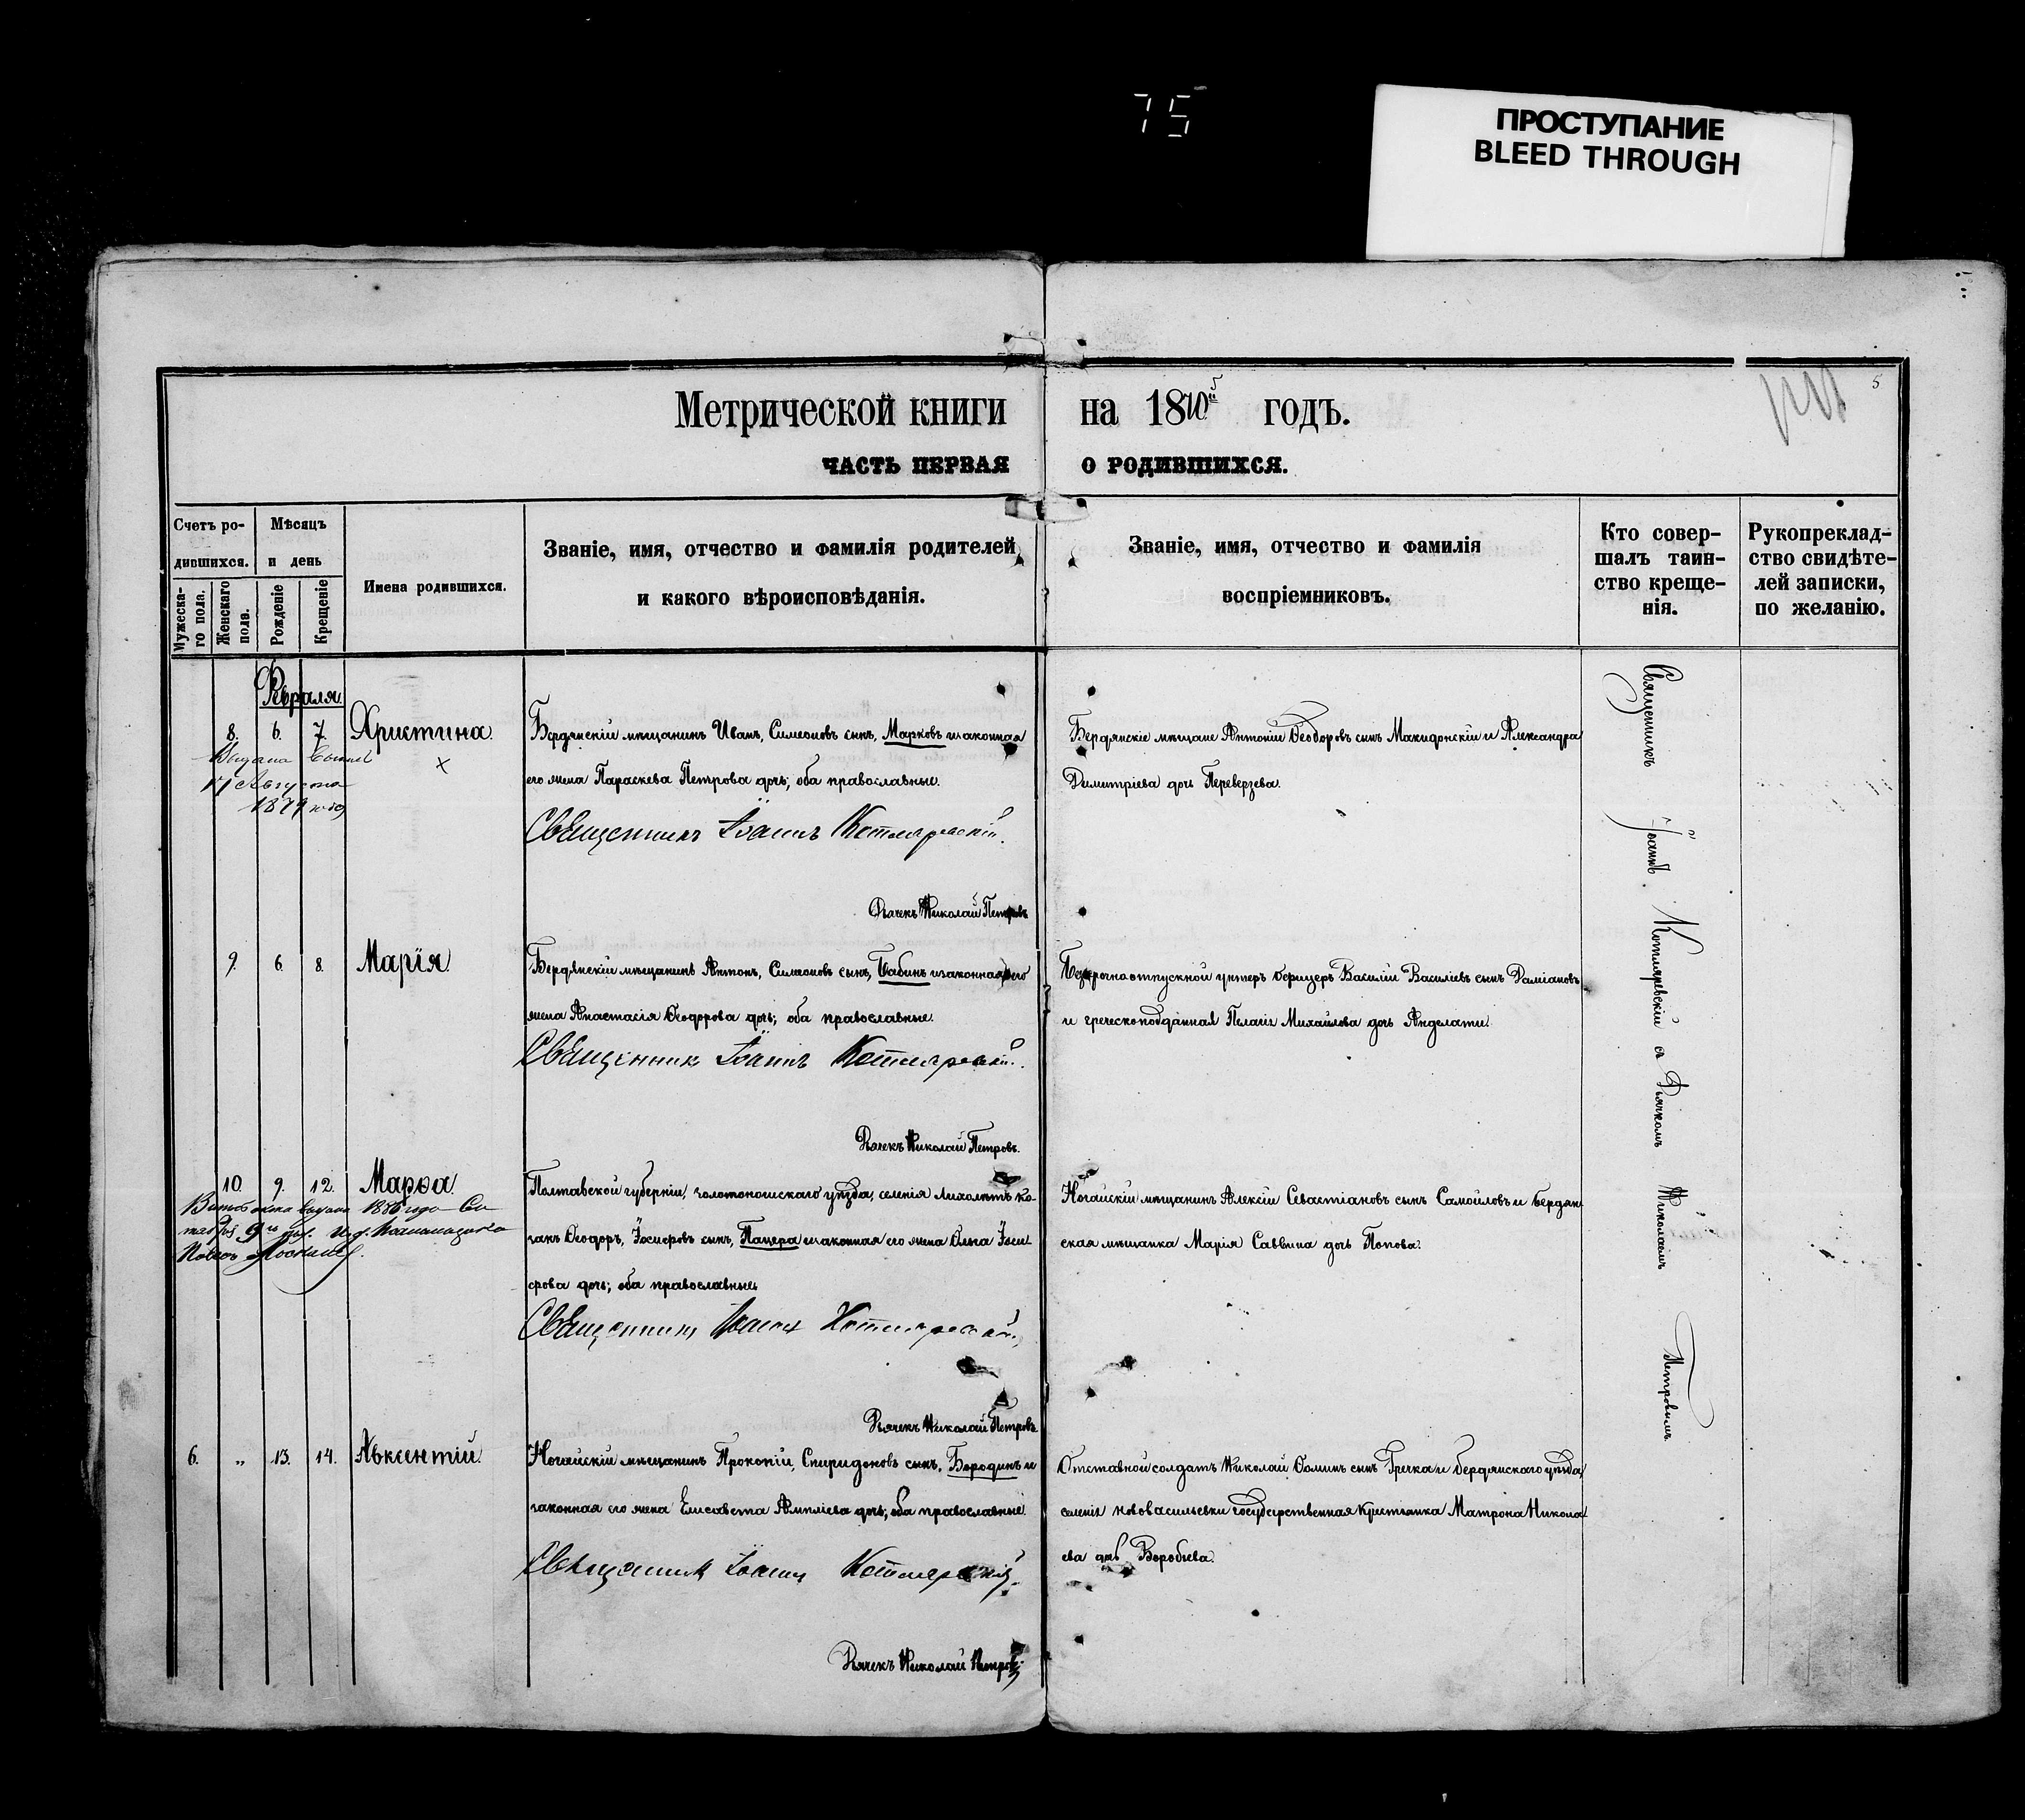 75
ПРОСТУПАНИЕ
BLEED THROUGH
5
Метрической книги на 1870 годъ.
ЧАСТЬ ПЕРВАЯ О РОДИВШИХСЯ.
Счетъ ро-
дившихся.
Мужеска-
го пола.
Женскаго
пола.
Мѣсяцъ
и день
Рожденіе
Крещеніе
Имена родившихся.
Званіе, имя, отчество и фамилія родителей
и какого вѣроисповѣданія.
Званіе, имя, отчество и фамилія
воспріемниковъ.
Кто совер-
шалъ таин-
ство креще-
нія.
Рукоприклад-
ство свидѣте-
лей записки,
по желанію.
Февраля
8. 6. 7. Христина.
17 Августа
1879 года
Бердянскій мѣщанинъ Иванъ, Симеоновъ сынъ, Марковъ и законная
его жена Параскева Петрова дочь; оба православные.
Священникъ Іоаннъ Котляревскій.
Дьячекъ Николай Петровъ
Бердянскіе мѣщане Антоній Ѳеодоровъ сынъ Македонскій и Александра
Димитріева дочь Переверзева.
9. 6. 8. Марія.
Бердянскій мѣщанинъ Антонъ, Симеоновъ сынъ, Бабинъ и законная его
жена Анастасія Ѳеодорова дочь; оба православные.
Священникъ Іоаннъ Котляревскій.
Дьячекъ Николай Петровъ.
Безсрочноотпускной унтеръ офицеръ Василій Василіевъ сынъ Даміановъ
и греческоподданная Пелагія Михайлова дочь Анделати.
10. 9. 12. Марѳа.
1886 года
Полтавской губерніи, золотоношскаго уѣзда, селенія Лихолѣтъ ко-
закъ Ѳеодоръ, Іосифовъ сынъ, Пацера и законная его жена Ольга Іоси-
фова дочь; оба православные
Священникъ Іоаннъ Котляревскій.
Дьячекъ Николай Петровъ
Ногайскій мѣщанинъ Алексій Севастіановъ сынъ Самойловъ и бердян
ская мѣщанка Марія Саввина дочь Попова.
6. „ 13. 14. Авксентій.
Ногайскій мѣщанинъ Прокопій, Спиридоновъ сынъ, Бородинъ и
законная его жена Елисавета Ампліева дочь; оба православные.
Священникъ Іоаннъ Котляревскій.
Дьячекъ Николай Петровъ
Отставной солдатъ Николай Ѳоминъ сынъ Гречка и бердянскаго уѣзда,
селенія нововасильевки государственная крестьянка Матрона Никола
ева дочь Воробіева.
Священникъ Іоаннъ Котляревскій съ Дьячкомъ Николаемъ Петровымъ.